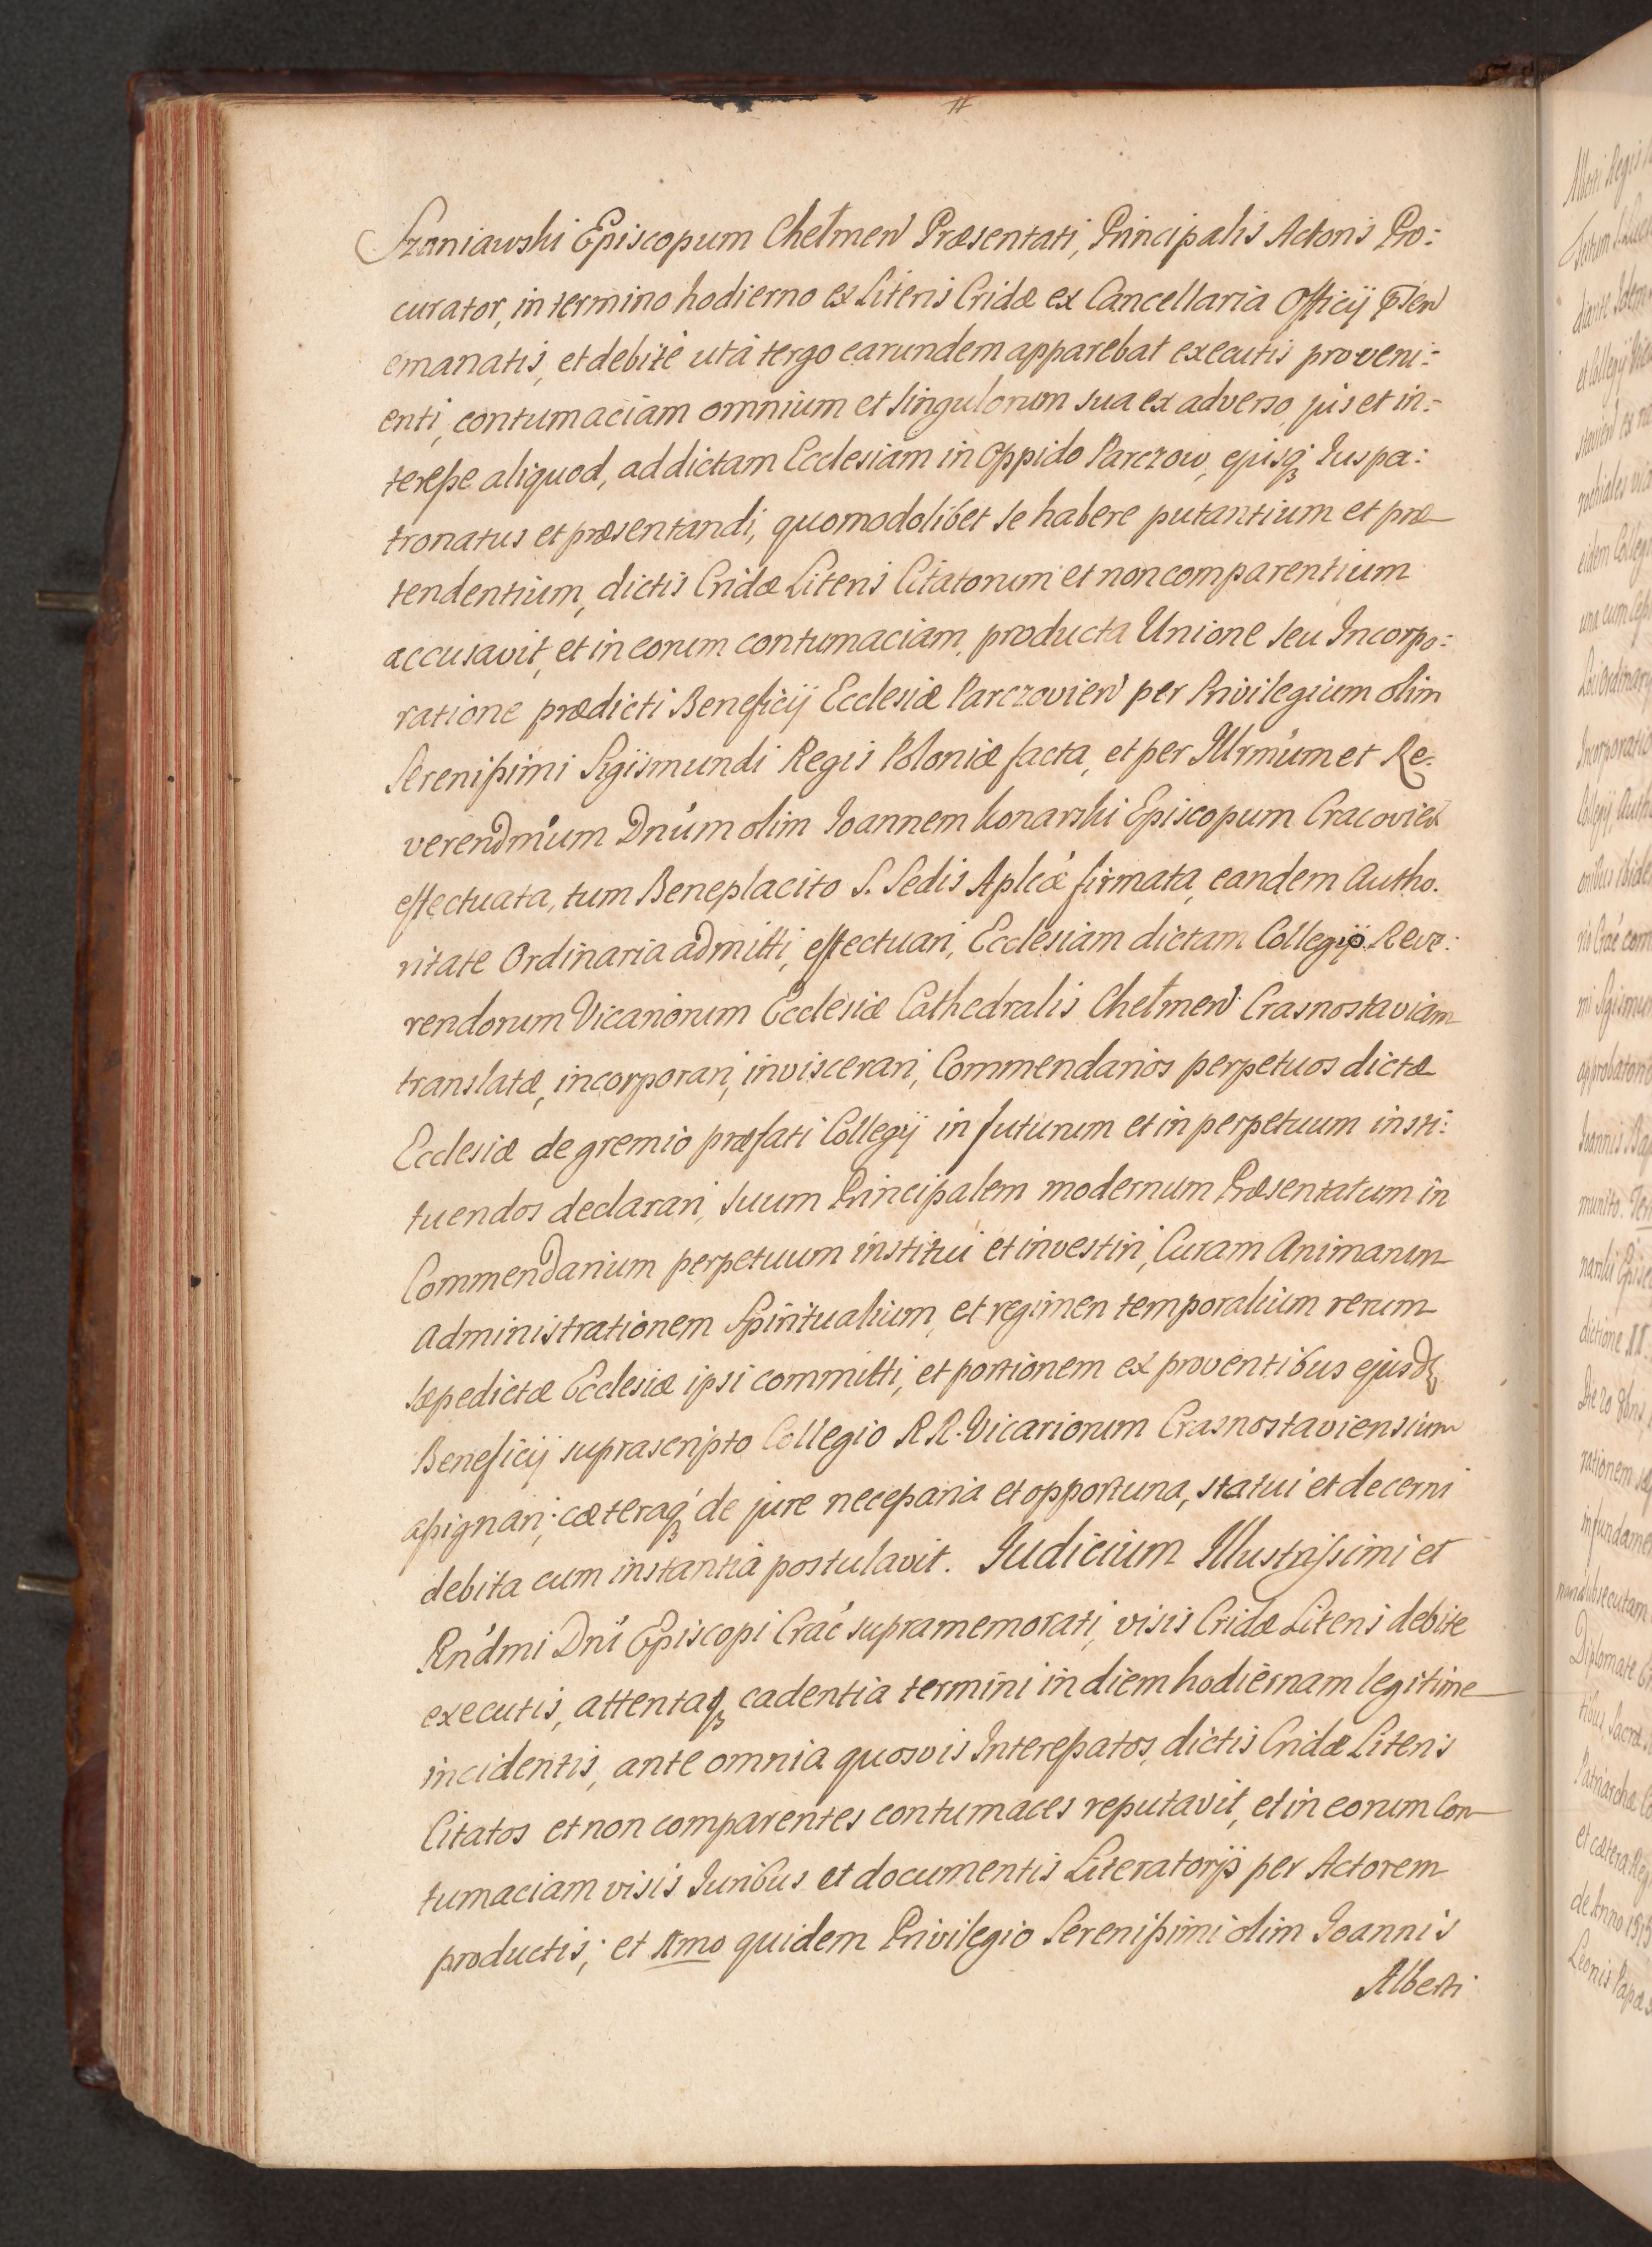 Szaniawski Episcopum Chełmen Præsentati, Principalis Actoris Pro:
curator, in termino hodierno ex Literis Cridæ ex Cancellaria Officij
emanatis, et debitè utà tergo earundem apparebat executis proveni:
enti, contumaciam omnium et singulorum sua ex adverso, jus et in:
teresse aliquod, ad dictam Ecclesiam in Oppido Parczow, ejusq; Juspa:
tronatus et præsentandi, quomodolibet se habere putantium et præ
tendentium, dictis Cridæ Literis Citatorum et non comparentium
accusavit, et in eorum contumaciam, producta Unione seu Incorpo:
ratione prædicti Beneficij Ecclesiæ Parczovien per Privilegium olim
Serenissimi Sigismundi Regis Poloniæ facta, et per Illrmum et Re:
verendmum Dnum olim Joannem Konarski Episcopum Cracovien
effectuata, tum Beneplacito S. Sedis Aplicæ firmata, eandem Autho.
ritate Ordinaria admitti, effectuari, Ecclesiam dictam Collegijo Reve:
rendorum Vicariorum Ecclesiæ Cathedralis Chełmen Crasnostaviam
translatæ, incorporari, inviscerari, Commendarios perpetuos dictæ
Ecclesiæ de gremio præfati Collegij in futurum et in perpetuum insti:
tuendos declarari, suum Principalem modernum Præsentatum in
Commendarium perpetuum institui et investiri, Curam Animarum
administrationem Spiritualium, et regimen temporalium rerum
sæpedictæ Ecclesiæ ipsi committi, et portionem ex proventibus ejusd
Beneficij suprascripto Collegio RR. Vicariorum Crasnostaviensium
assignari; cæteraq; de jure necessaria et opportuna, statui et decerni
debita cum instantia postulavit. Judicium Illustrissimi et
Rndmi Dni Episcopi Crac supramemorati, visis Cridæ Literis debite
executis, attentaq; cadentia termini in diem hodiernam legitime
incidentis, ante omnia quosvis Interessatos, dictis Cridæ Literis
Citatos et non comparentes contumaces reputavit, et in eorum Con
tumaciam visis Juribus et documentis Literatorijs per Actorem
productis; et Imo quidem Privilegio Serenissimi olim Joannis
Alberti